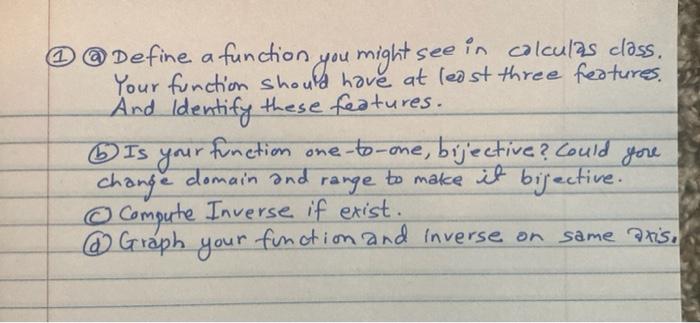 ① ⓐ Define a function you might see in calculas class.
Your function should have at least three features.
And Identify these features.
ⓑ Is your function one-to-one, bijective? Could you
change domain and range to make it bijective.
ⓒ Compute Inverse if exist.
ⓓ Graph your function and inverse on same axis.